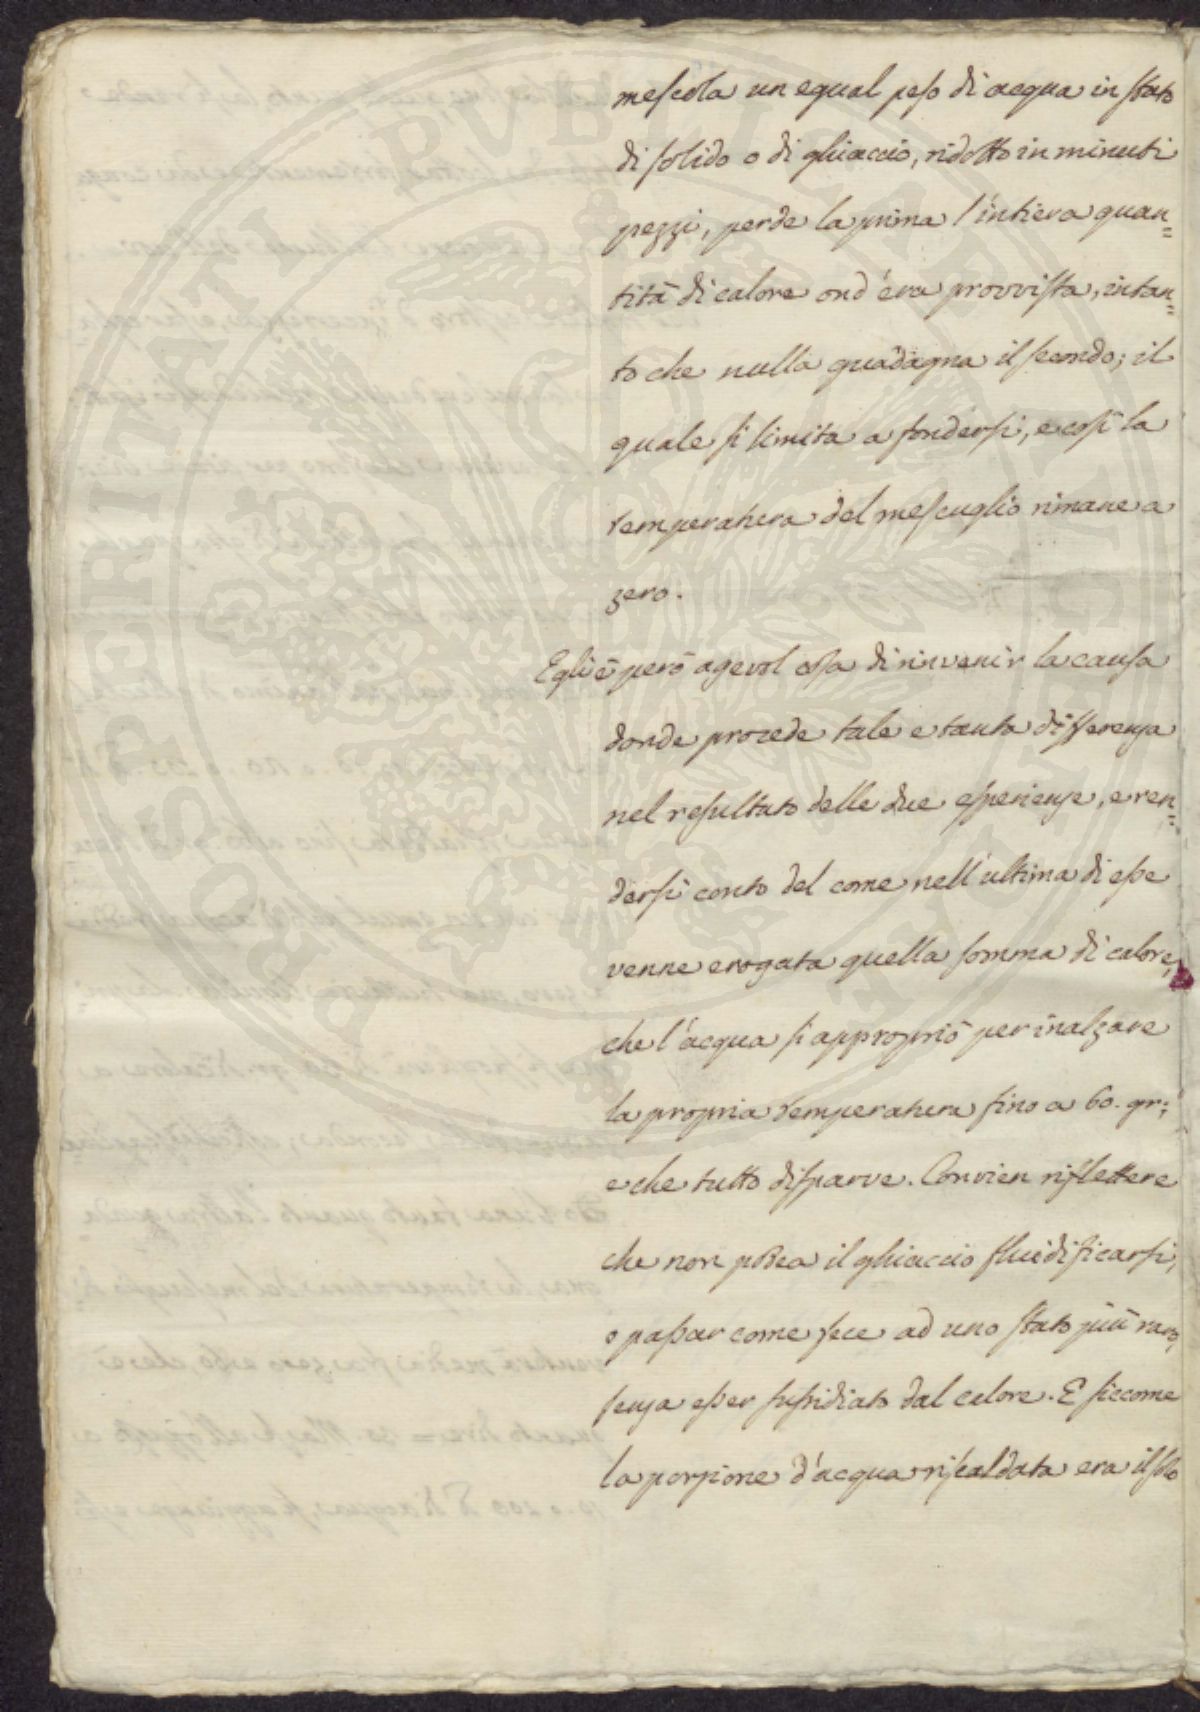 mescola un egual peso di acqua in stato
di solido o di ghiaccio, ridotto in minuti
pezzi, perde la prima l'intiera quan=
tità di calore ond'era provvista, intan=
to che nulla guadagna il secondo; il
quale si limita a fondersi, e così la
temperatura del mescuglio rimane a
zero.
Egli è però agevol cosa di rinvenir la causa
donde procede tale e tanta differenza
nel resultato delle due esperienze, e ren=
dersi conto del come nell'ultima di esse
venne erogata quella somma di calore,
che l'acqua si appropriò per inalzare
la propria temperatura fino a 60. gr:
e che tutto disparve. Convien riflettere
che non potea il ghiaccio fluidificarsi,
o passar come fece ad uno stato più raro,
senza esser sussidiato dal calore. E siccome
la porzione d'acqua riscaldata era il solo
PROSPERITATI PUBLICAE AUGENDAE